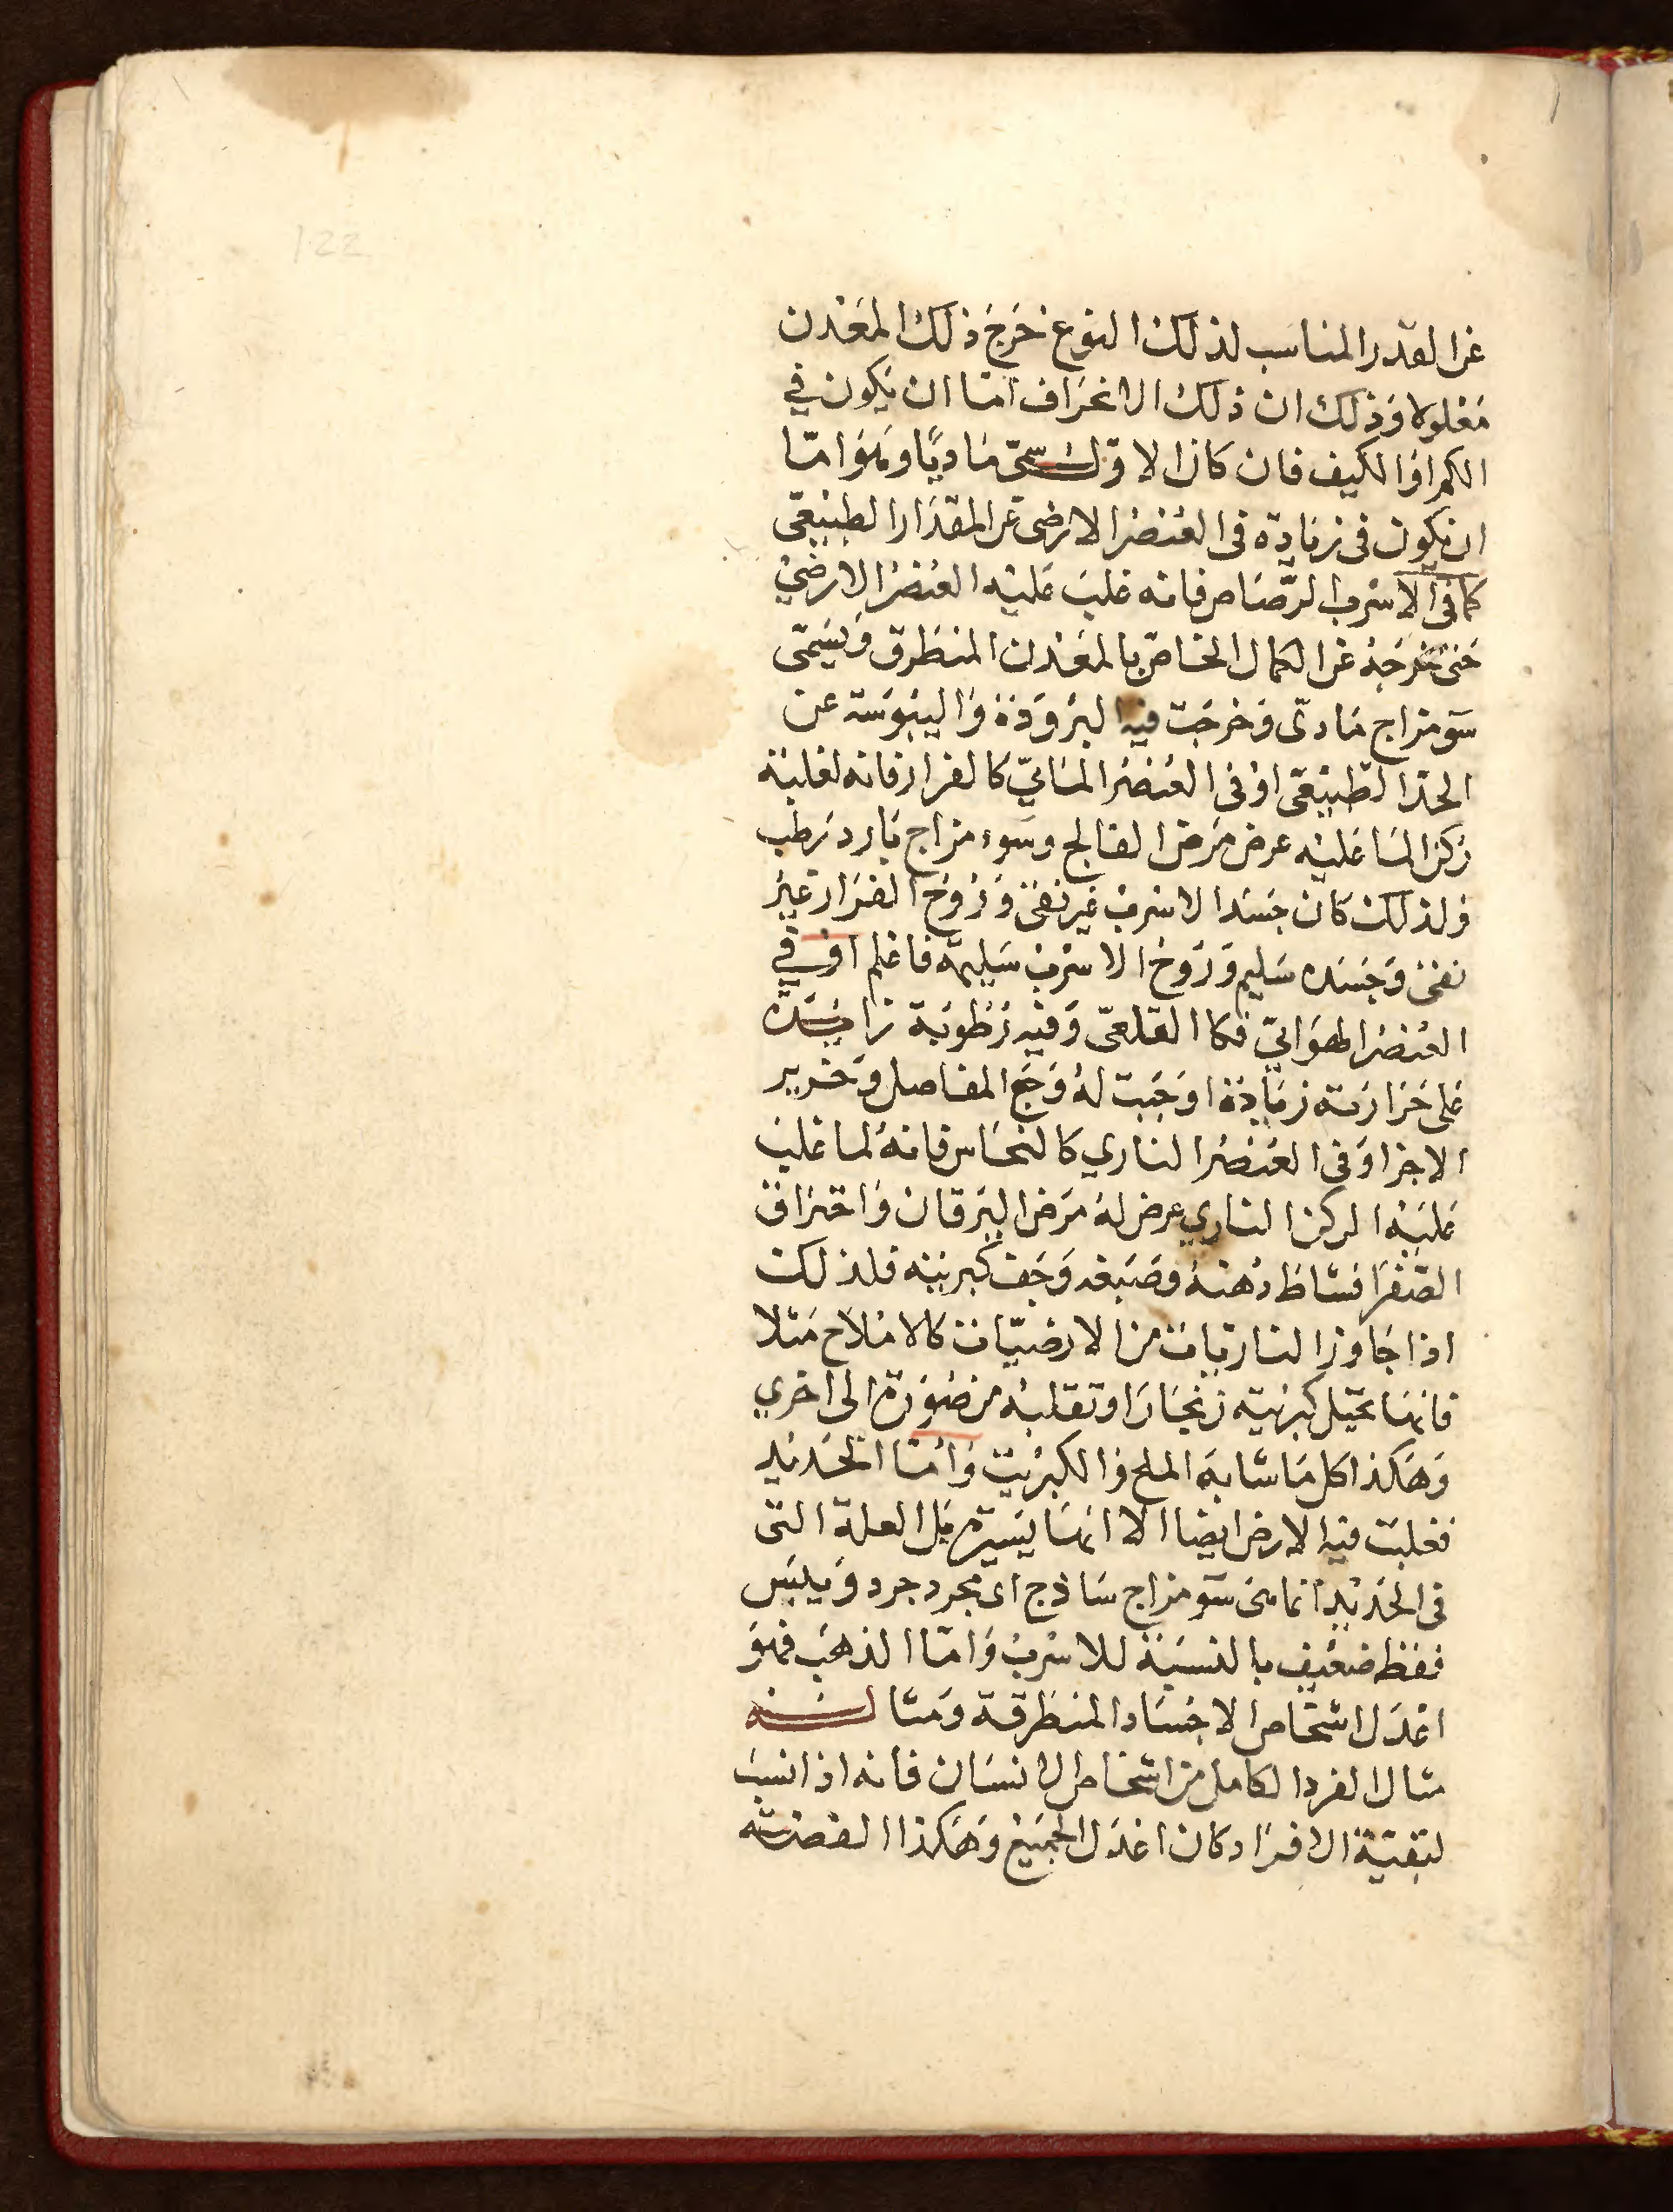 122
عن القدر المناسب لذلك النوع خرج ذلك المعدن
معلولا وذلك ان ذلك الانحراف اما ان يكون في
الكم او الكيف فان كان الاول سمى ماديا وهو اما
ان يكون فى زيادة فى العنصر الارضى عن المقدار الطبيعى
كما فى الاسرب الرصاص فانه غلب عليه العنصر الارضي
حتى خرجه عن الكمال الخاص بالمعدن المنطرق ويسمى
سو مزاج مادى وخرجت فيه البرودة واليبوسة عن
الحد الطبيعى او فى العنصر المائي كالفرار فانه لغلبة
ركن الما عليه عرض مرض الفالج وسوء مزاج بارد رطب
ولذلك كان جسد الاسرب غير نقى وروح الفرار غير
نقى وجسده سليم وروح الاسرب سليمة فاعلم او في
العنصر الهوائي فكا القلعى وفيه رطوبة زايدة
على حرارته زيادة اوجبت له وجع المفاصل وخرير
الاجزا وفى العنصر الناري كالنحاس فانه لما غلب
عليه الركن الناري عرض له مرض اليرقان واحتراق
الصفرا فشاط دهنه وصبغه وجف كبريته فلذلك
اذا جاوز الناريات من الارضيات كالاملاح مثلا
فانها تحيل كبريته زنجارا وتقلبه من صورة الى اخري
وهكذا كل ما شابه الملح والكبريت واما الحديد
فغلبت فيه الارض ايضا الا انها يسيرة بل العلة التى
فى الحديد انما هى سو مزاج ساذج اى مجرد جرد ويبس
فقط ضعيف بالنسبة للاسرب واما الذهب فهو
اعدل اشخاص الاجساد المنطرقة ومثاله
مثال الفرد الكامل من اشخاص الانسان فانه اذا نسب
لبقية الافراد كان اعدل الجميع وهكذا الفضة